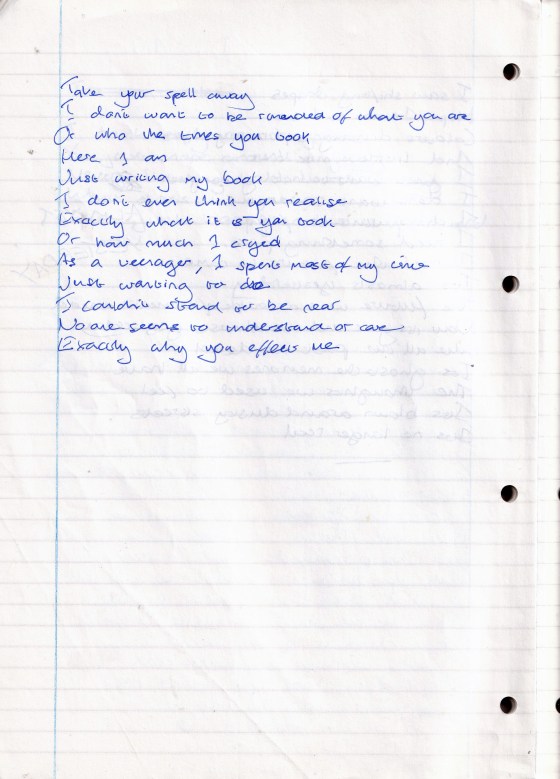 Take your spell away
I don't want to be reminded of what you are
Or who the times you took
Here I am
Just writing my book
I don't even think you realise
Exactly what it is you took
Or how much I cryed
As a teenager, I spent most of my time
Just wanting to die
I couldn't stand to be near
No one seems to understand or care
Exactly why you effect me